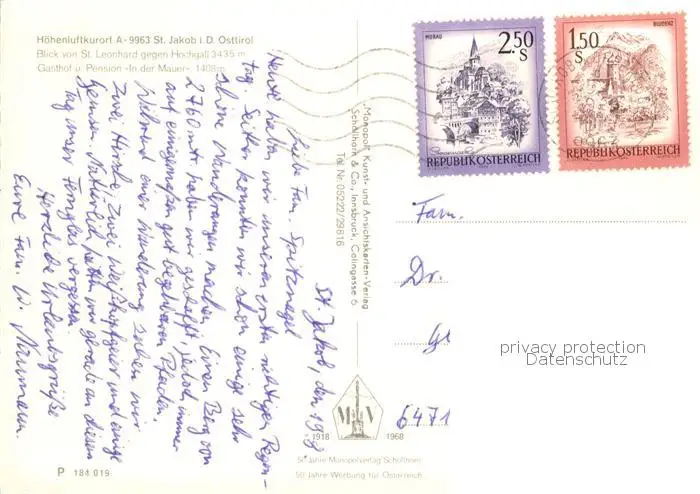 Höhenluftkurort A-9963 St. Jakob i. D. Osttirol
Blick von St. Leonhard gegen Hochgall 3435 m
Gasthof u. Pension »In der Mauer« 1408m
St. Jakob, den 19.8.
Liebe Fam. Spritznagel
Heute haben wir unseren ersten richtigen Regen-
tag. Seither konnten wir schon einige sehr
schöne Wanderungen machen. Einen Berg von
2760 mtr. haben wir geschafft, jedoch immer
auf einigermaßen gut begehbaren Pfaden.
Während einer Wanderung sahen wir
zwei Hirsche, zwei Weißkopfgeier und einige
Gemsen. Natürlich hatten wir gerade an diesem
Tag unser Fernglas vergessen.
Herzliche Urlaubsgrüße
Eure Fam. W. Naumann.
Monopol: Kunst- und Ansichtskarten-Verlag
Schöllhorn & Co., Innsbruck, Colingasse 6
Tel. Nr. 05222/29816
MURAU
2.50
S
REPUBLIK ÖSTERREICH
BLUDENZ
1.50
S
REPUBLIK ÖSTERREICH
Fam.
Dr.
6471
privacy protection
Datenschutz
M V
1918 1968
50 Jahre Monopolverlag Schöllhorn
50 Jahre Werbung für Österreich
P 184 019